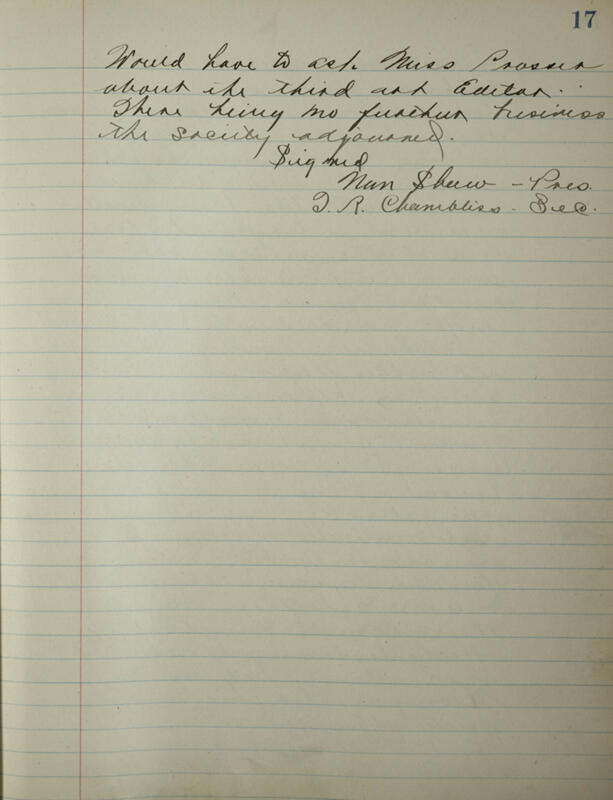 17
Would have to ask Miss Prosser
about the third art Editor.
There being no further business
the society adjourned.
Signed
Nan Shaw - Pres.
T. R. Chambliss - Sec.